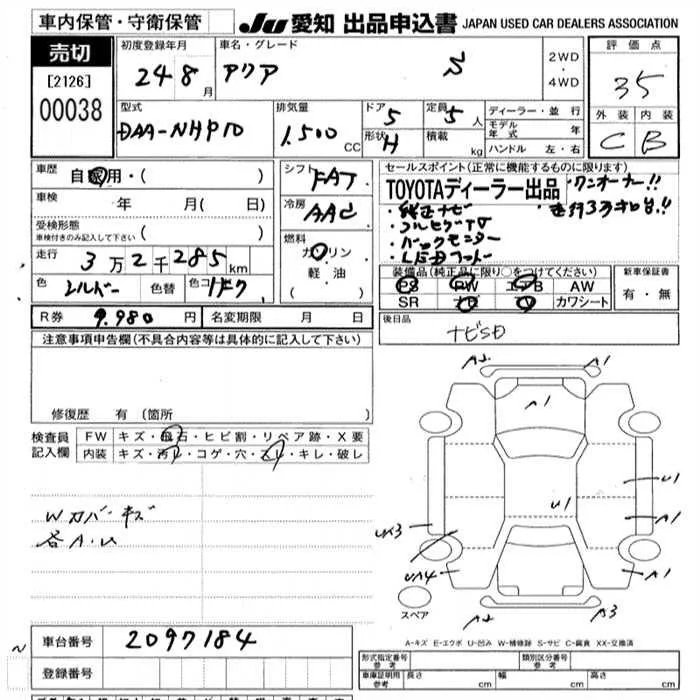 車内保管・守衛保管 JU 愛知 出品申込書 JAPAN USED CAR DEALERS ASSOCIATION
売切
[2126]
00038
初度登録年月
24 8月
車名・グレード
アクア S
2WD
・
4WD
評価点
3.5
外装 内装
C B
型式
DAA-NHP10
排気量
1.500 CC
ドア 5
形状 H
定員 5人
積載 kg
ディーラー・並行
モデル年式 年
ハンドル 左・右
車歴 自家用・( )
車検 年 月( 日)
受検形態
車検付きのみ記入して下さい ( )
走行 3万2千285km
色 シルバー 色替 色コード 1F7
シフト FAT
冷房 AAC
燃料
ガソリン
軽・油
( )
セールスポイント(正常に機能するものに限ります)
TOYOTAディーラー出品 ・ワンオーナー!!
・純正ナビ ・走行3万キロ台!!
・フルセグTV
・バックモニター
・LEDライト
装備品(純正品に限り○をつけてください)
PS PW エアB AW
SR ナビ TV カワシート
新車保証書
有・無
R券 9.980円 名変期限 月 日
後日品
ナビSD
注意事項申告欄(不具合内容等は具体的に記入して下さい)
修復歴 有(箇所
検査員記入欄
FW キズ・飛石・ヒビ割・リペア跡・X要
内装 キズ・汚レ・コゲ・穴・スレ・キレ・破レ
Wカバーキズ
各A.U
A2 A1
A1
U1
U1
A1
UA3
UA4
A1
A2 A3
スペア
A-キズ E-エクボ U-凹み W-補修跡 S-サビ C-腐食 XX-交換済
車台番号 2097184
登録番号
形式指定番号
参考
類別区分番号
参考
車庫証明用
参考
長さ cm 幅 cm 高さ cm